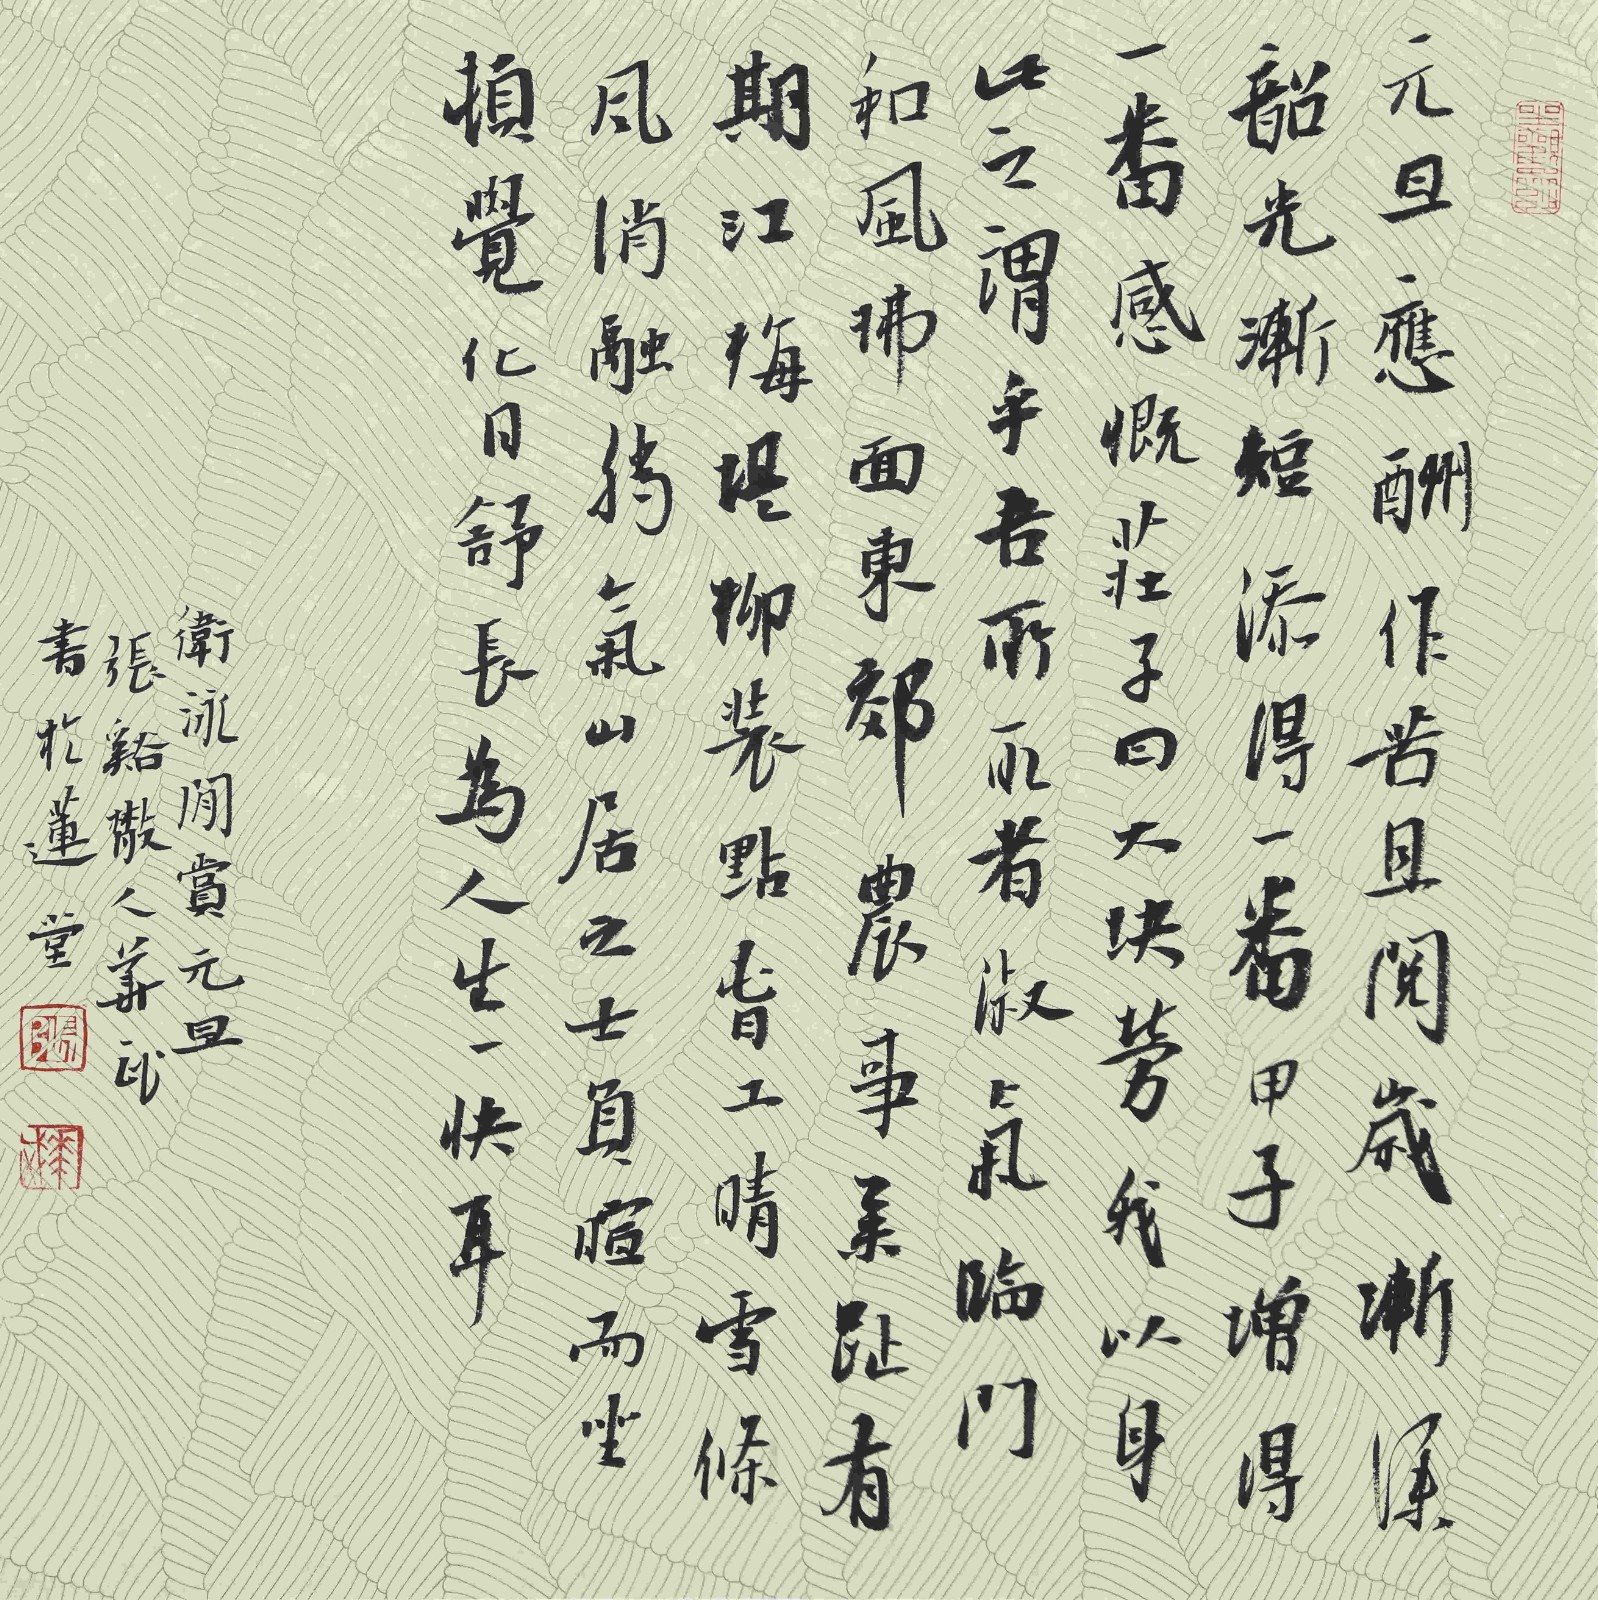 元旦應酬作苦且閱歲漸深
韶光漸短添得一番甲子增得
一番感慨莊子曰大塊勞我以身
此之謂乎吾所取者淑氣臨門
和風拂面東郊農事舉趾有
期江梅堤柳裝點春工晴雪條
風消融臈氣山居之士負暄而坐
頓覺化日舒長為人生一快耳
衛泳閒賞元旦
張谿散人華武
書於蓮堂